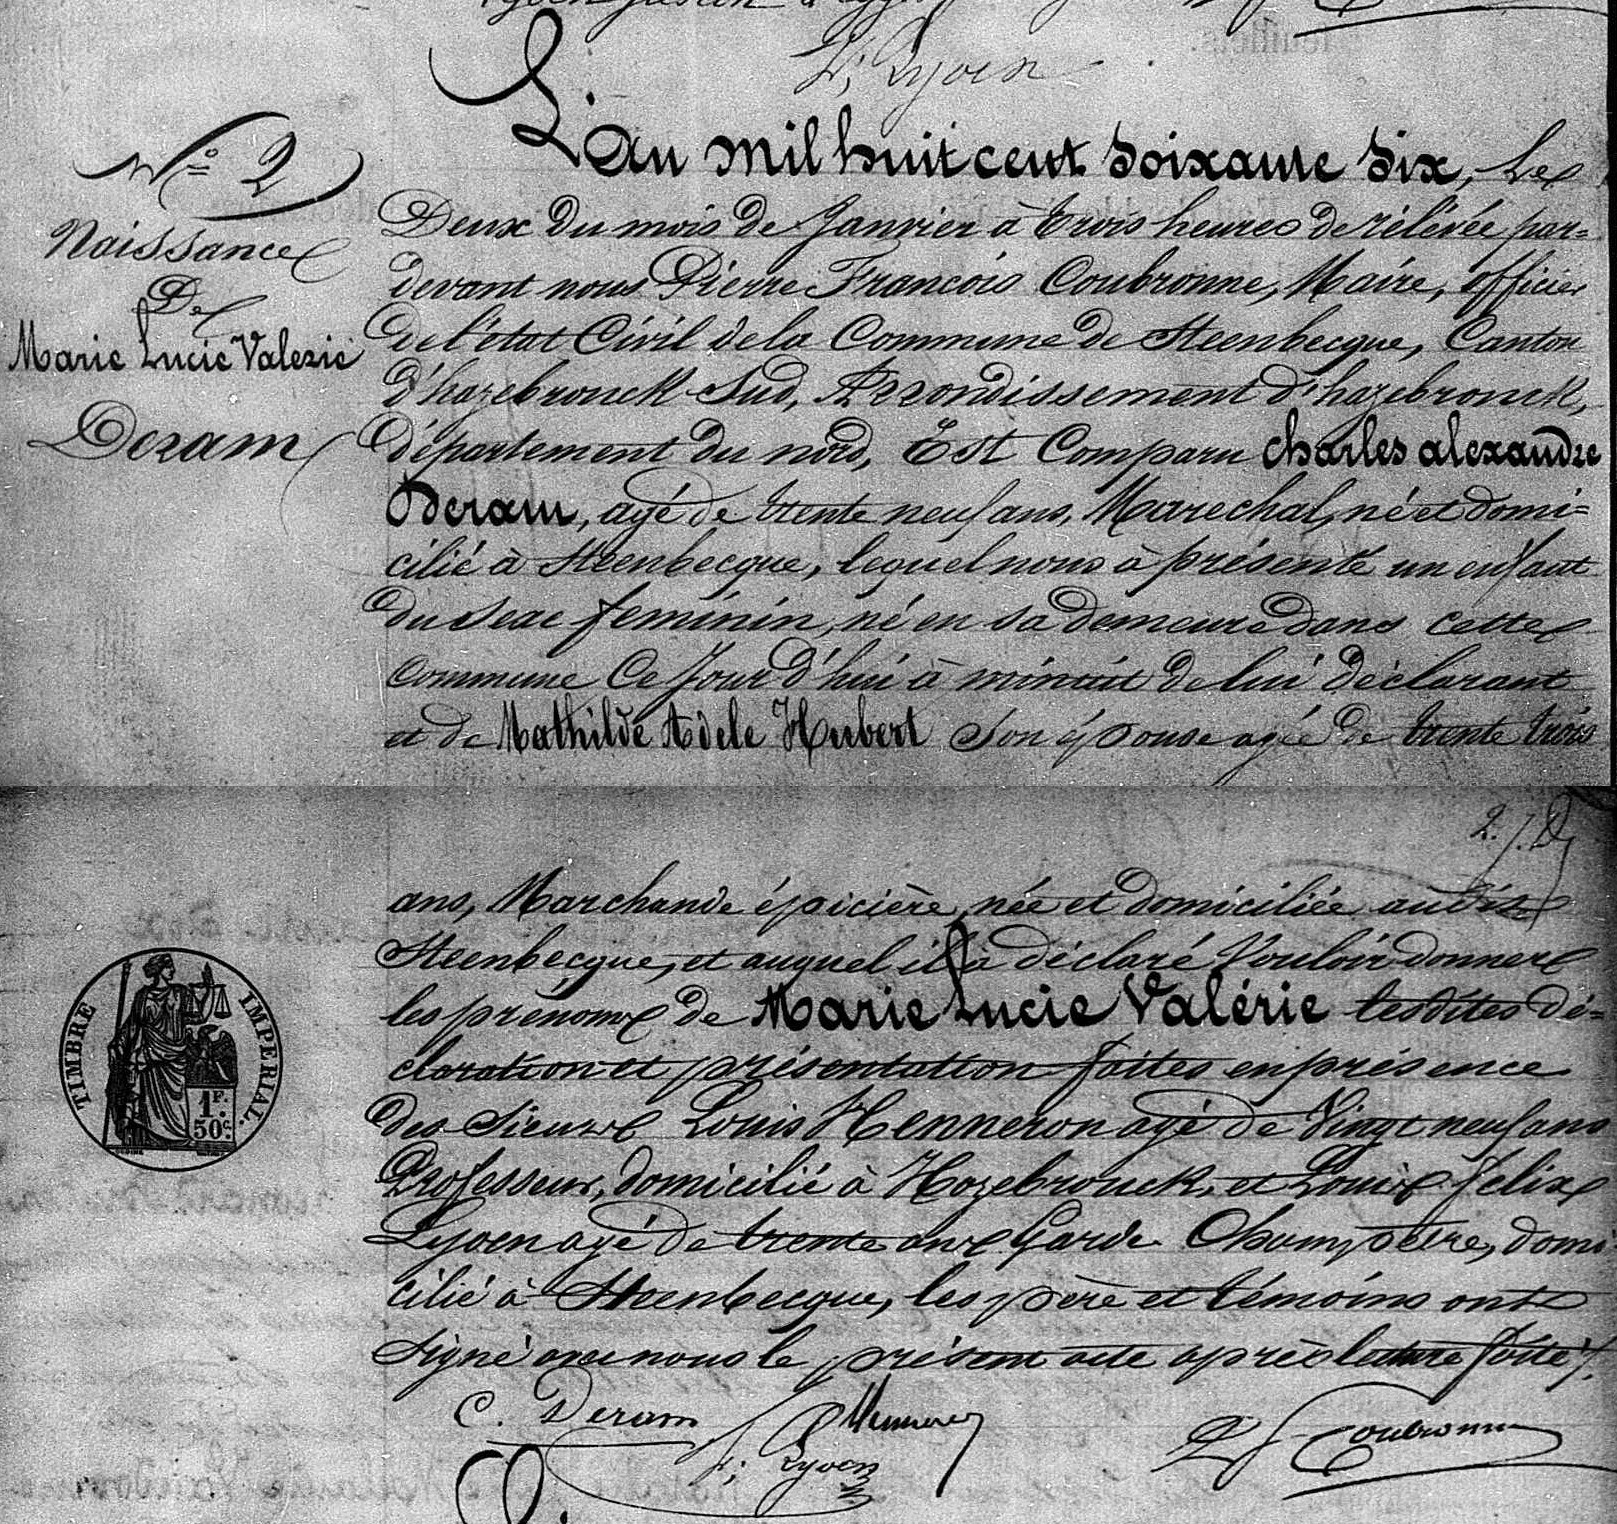 F; Lyoen
N° 2
Naissance
De
Marie Lucie Valerie
Deram
L'an mil huit cent soixante six, Le
Deux du mois de Janvier à trois heures de rélévée par=
devant nous Piérre François Coubronne, Maire, officier
de l'état Civil de la Commune de Steenbecque, Canton
d'hazebrouck Sud, Arrondissement d'hazebrouck,
département du nord, Est Comparu charles alexandre
Deram, agé de trente neuf ans, Marechal, né et domi=
cilié à Steenbecque, lequel nous à présenté un enfant
du sexe feminin, né en sa demeure dans cette
commune Ce Jour d'hui à minuit de lui déclarant
et de Mathilde Adele Hubert son épouse agée de trente trois
2. f. D
ans, Marchande épicière, née et domiciliée audit
Steenbecque, et auquel il à déclaré Vouloir donner
les prénoms de Marie Lucie Valérie lesdites dé=
claration et présentation faites en présence
des Sieurs Louis Henneron agé de Vingt neuf ans
Professeur, domicilié à Hazebrouck, et Louis felix
Lyoen agé de trente ans Garde Champetre, domi
cilié à Steenbecque, les père et témoins ont
signé avec nous le présent acte après lecture faite /.
TIMBRE IMPERIAL.
1F.
50c.
C. Deram
F; Lyoen
P F Coubronne